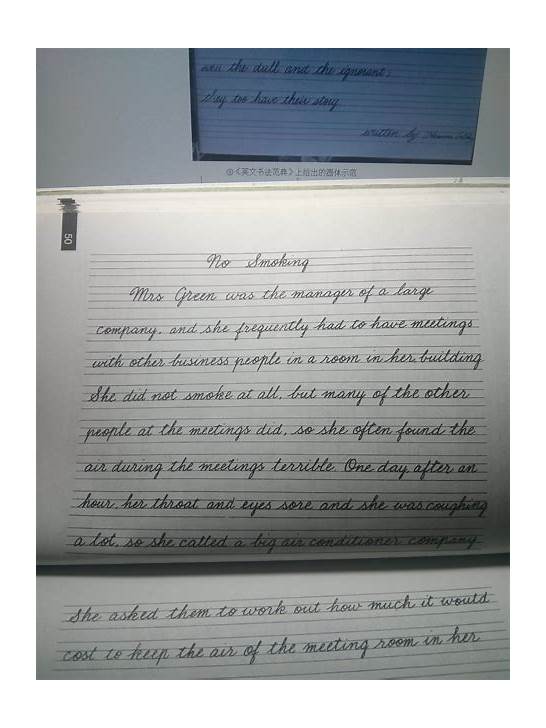 even the dull and the ignorant;
they too have their story
written by
①《英文书法范典》上给出的圆体示范
50
No Smoking
Mrs Green was the manager of a large
company, and she frequently had to have meetings
with other business people in a room in her building
She did not smoke at all, but many of the other
people at the meetings did, so she often found the
air during the meetings terrible. One day, after an
hour, her throat and eyes sore and she was coughing
a lot, so she called a big air conditioner company
She asked them to work out how much it would
cost to keep the air of the meeting room in her